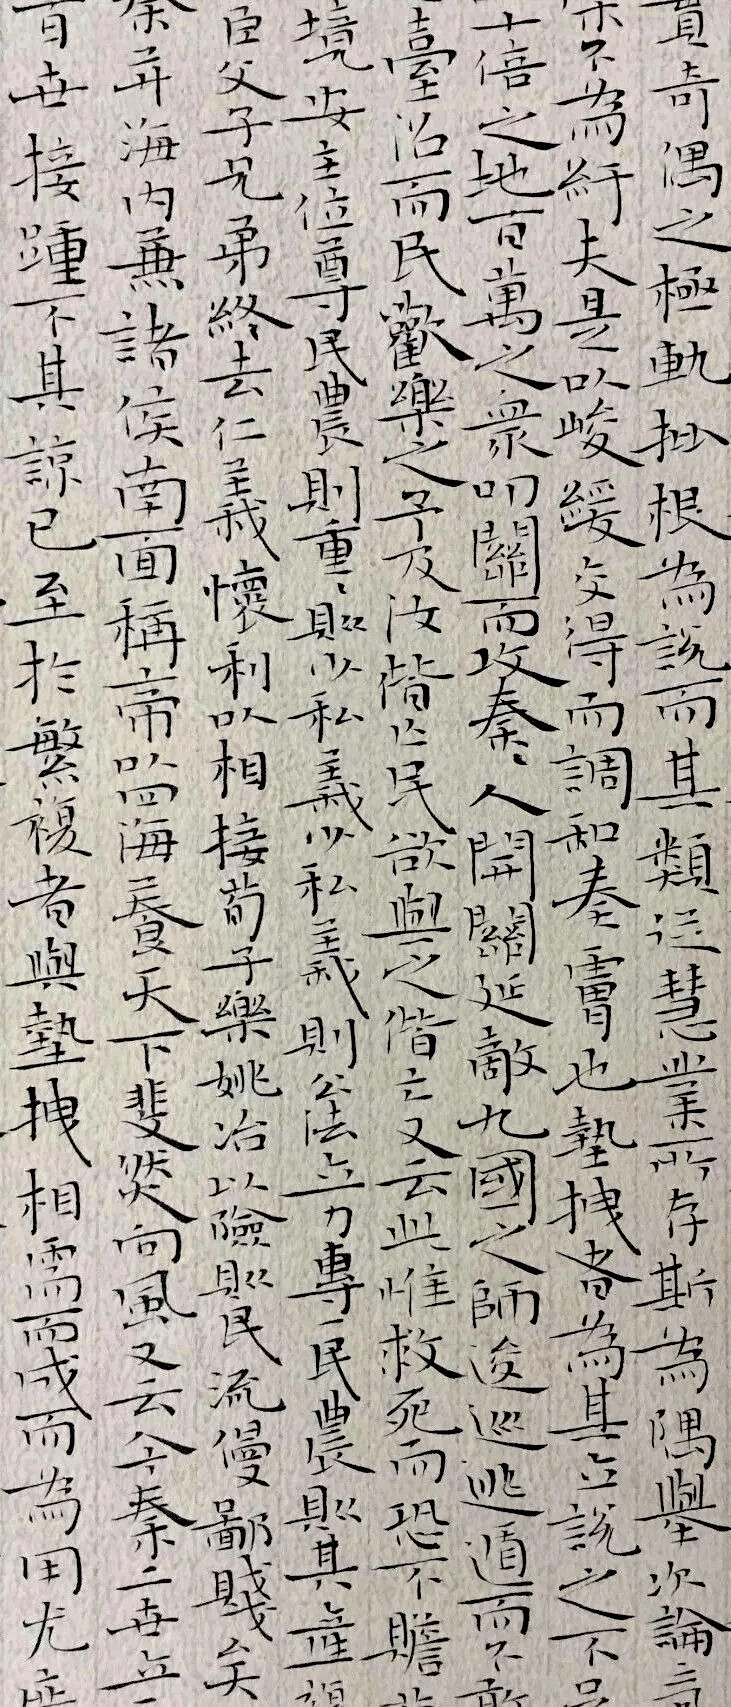 賞奇偶之極軌批根為說而其類從慧業所存斯為隅舉次論氣
不為紆夫是以峻緩交得而調和奏膚也墊拽者為其立說之不足
十倍之地百萬之眾叩關而攻秦〻人開關延敵九國之師逡巡逃遁而不敢
臺沼而民歡樂之予及汝偕亡民欲與之偕亡又云此惟救死而恐不贍
境安主位尊民農則重〻則少私義少私義則公法立力專一民農則其產復
臣父子兄弟終去仁義懷利以相接荀子樂姚冶以險則民流僈鄙賤矣
秦并海內兼諸侯南面稱帝以四海養天下斐然向風又云今秦二世立
首世接踵不其諒已至於繁複者與墊拽相需而成而為用尤廣